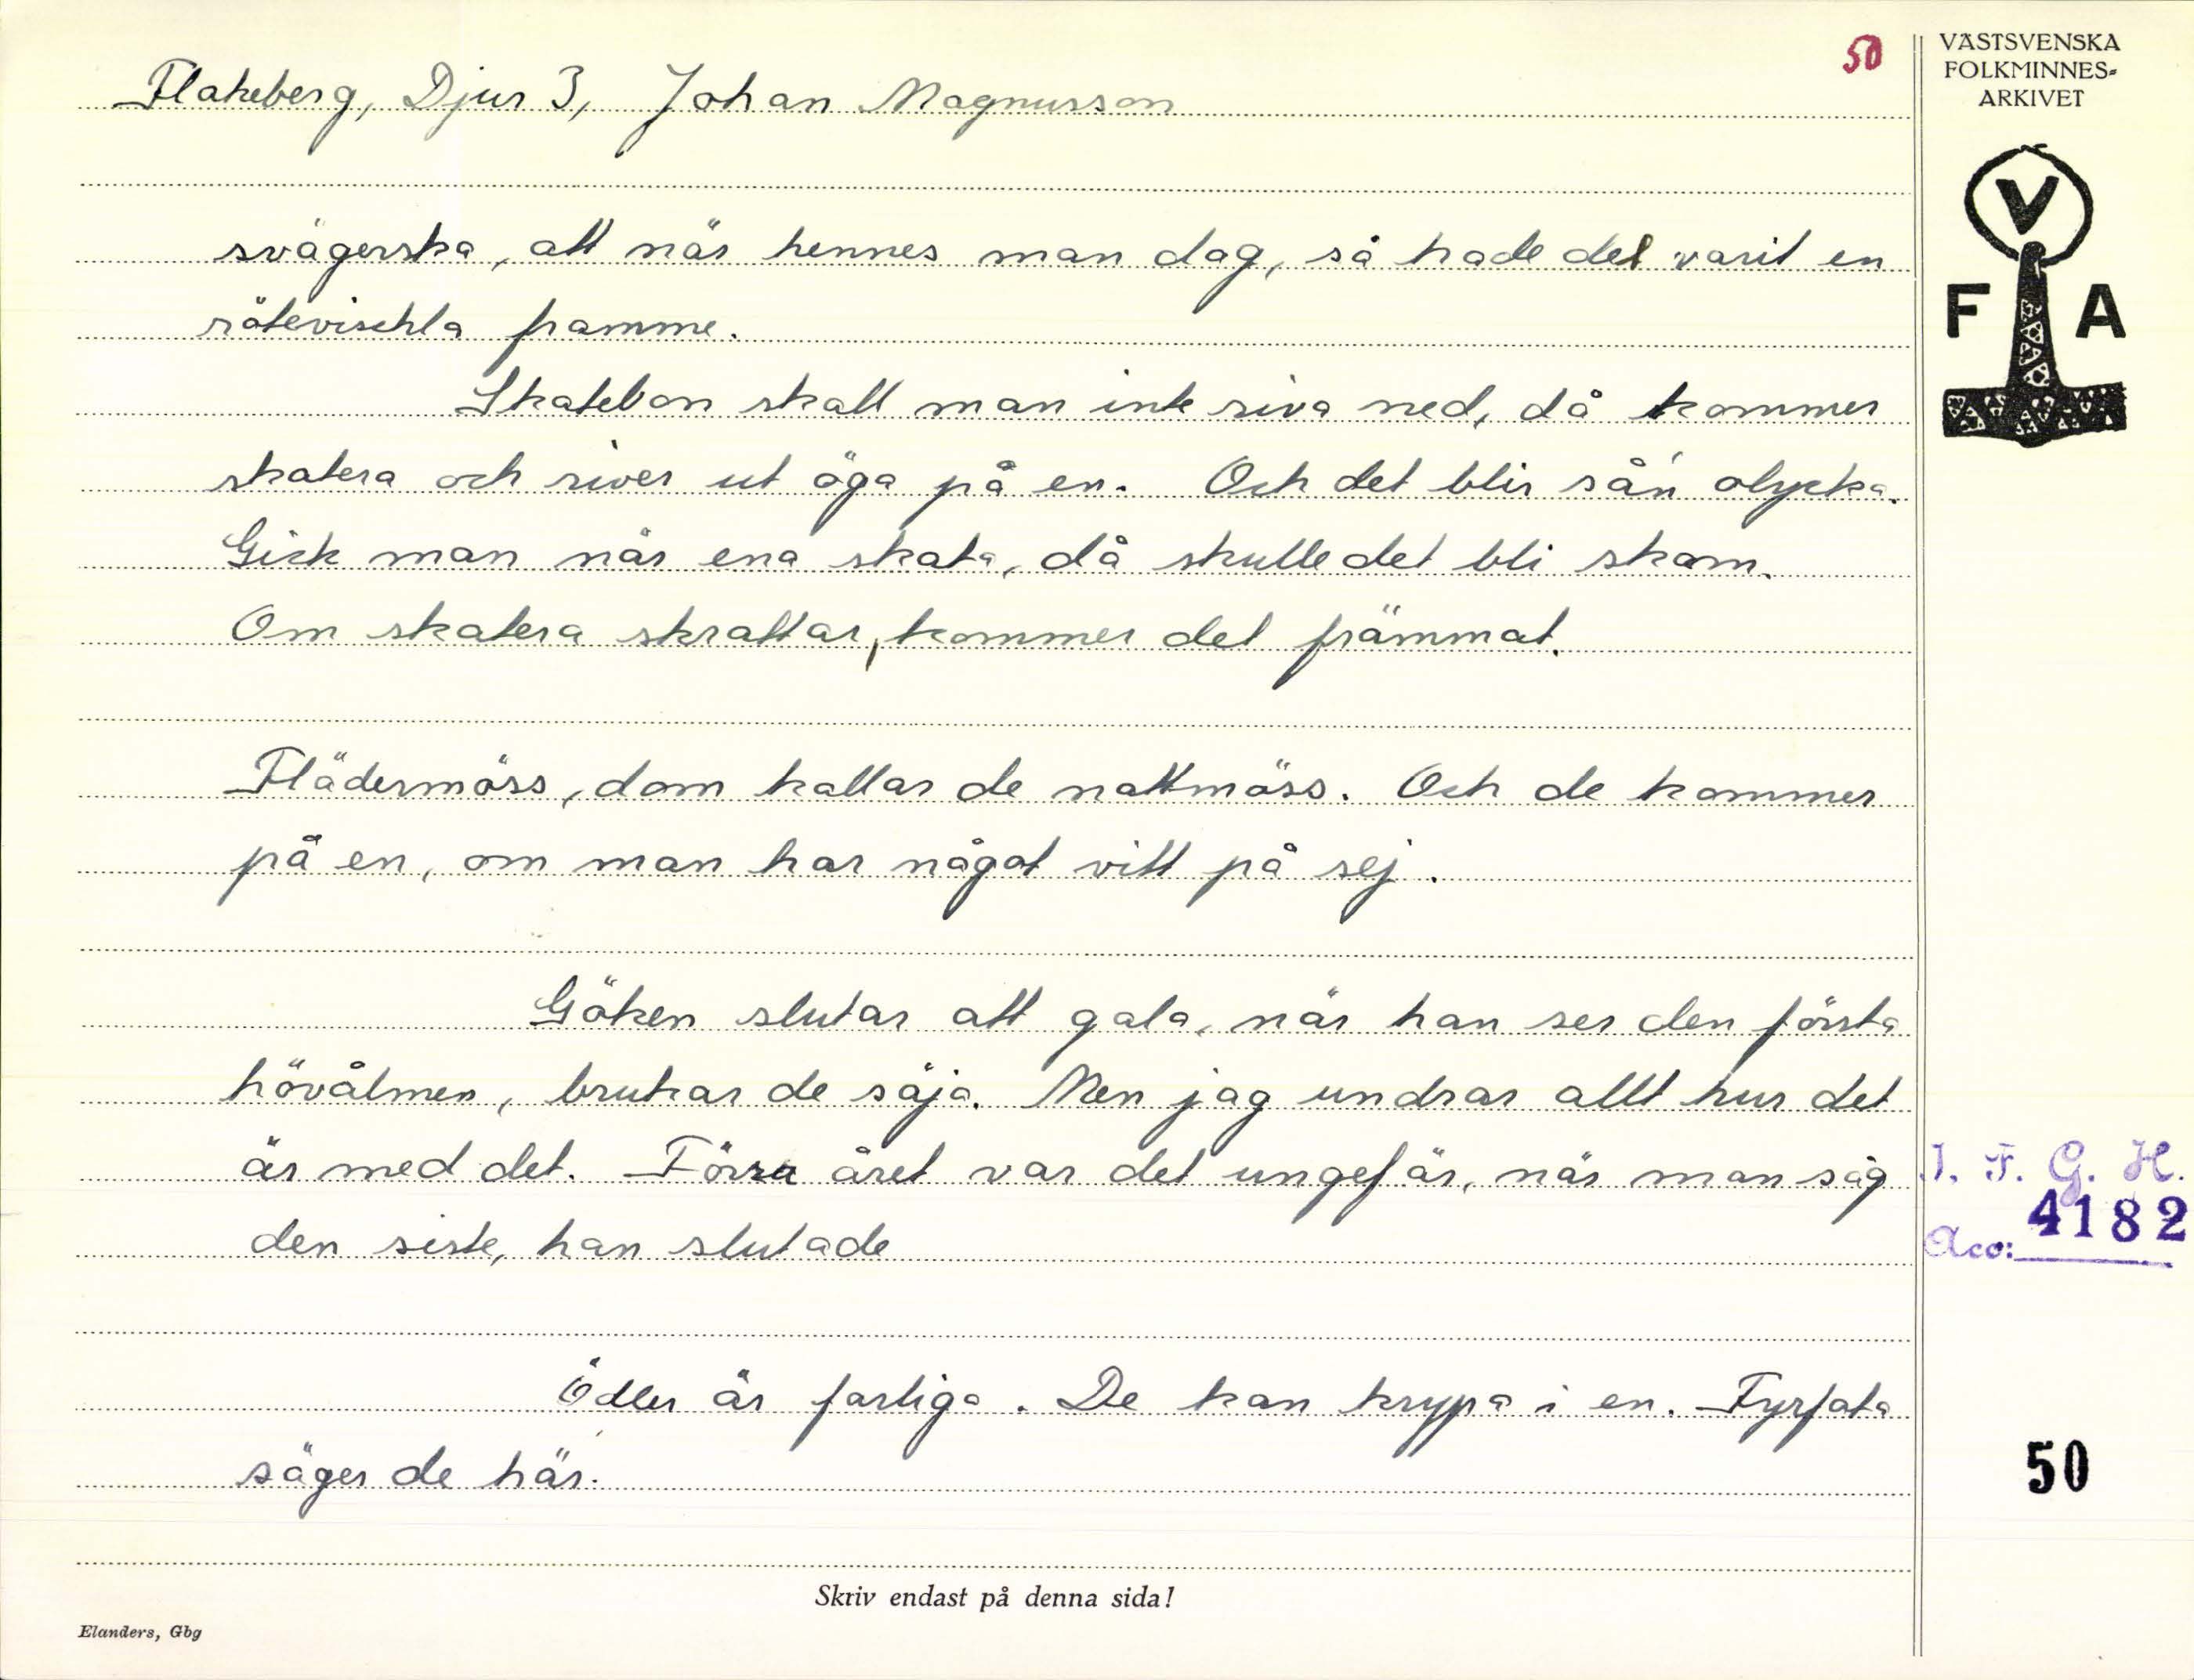 50
Flakeberg, Djur 3, Johan Magnusson
svägerska, att när hennes man dog, så hade det varit en
rötevischla framme.
Skatebon skall man inte riva ned, då kommer
skatera och river ut öga på en. Och det blir sån olycka.
Gick man när ena skata, då skulle det bli skam.
Om skatera skrattar, kommer det främmat.
Flädermöss, dom kallar de nattmöss. Och de kommer
på en, om man har något vitt på sej.
Göken slutar att gala, när han ser den första
hövålmen, brukar de säja. Men jag undrar allt hur det
är med det. Förra året var det ungefär, när man såg
den siste, han slutade
Ödler är farliga. De kan krypa i en. Fyrfota
säger de här.
Skriv endast på denna sida!
Elanders, Gbg
VÄSTSVENSKA
FOLKMINNES-
ARKIVET
V
F A
I. F. G. H.
Acc: 4182
50